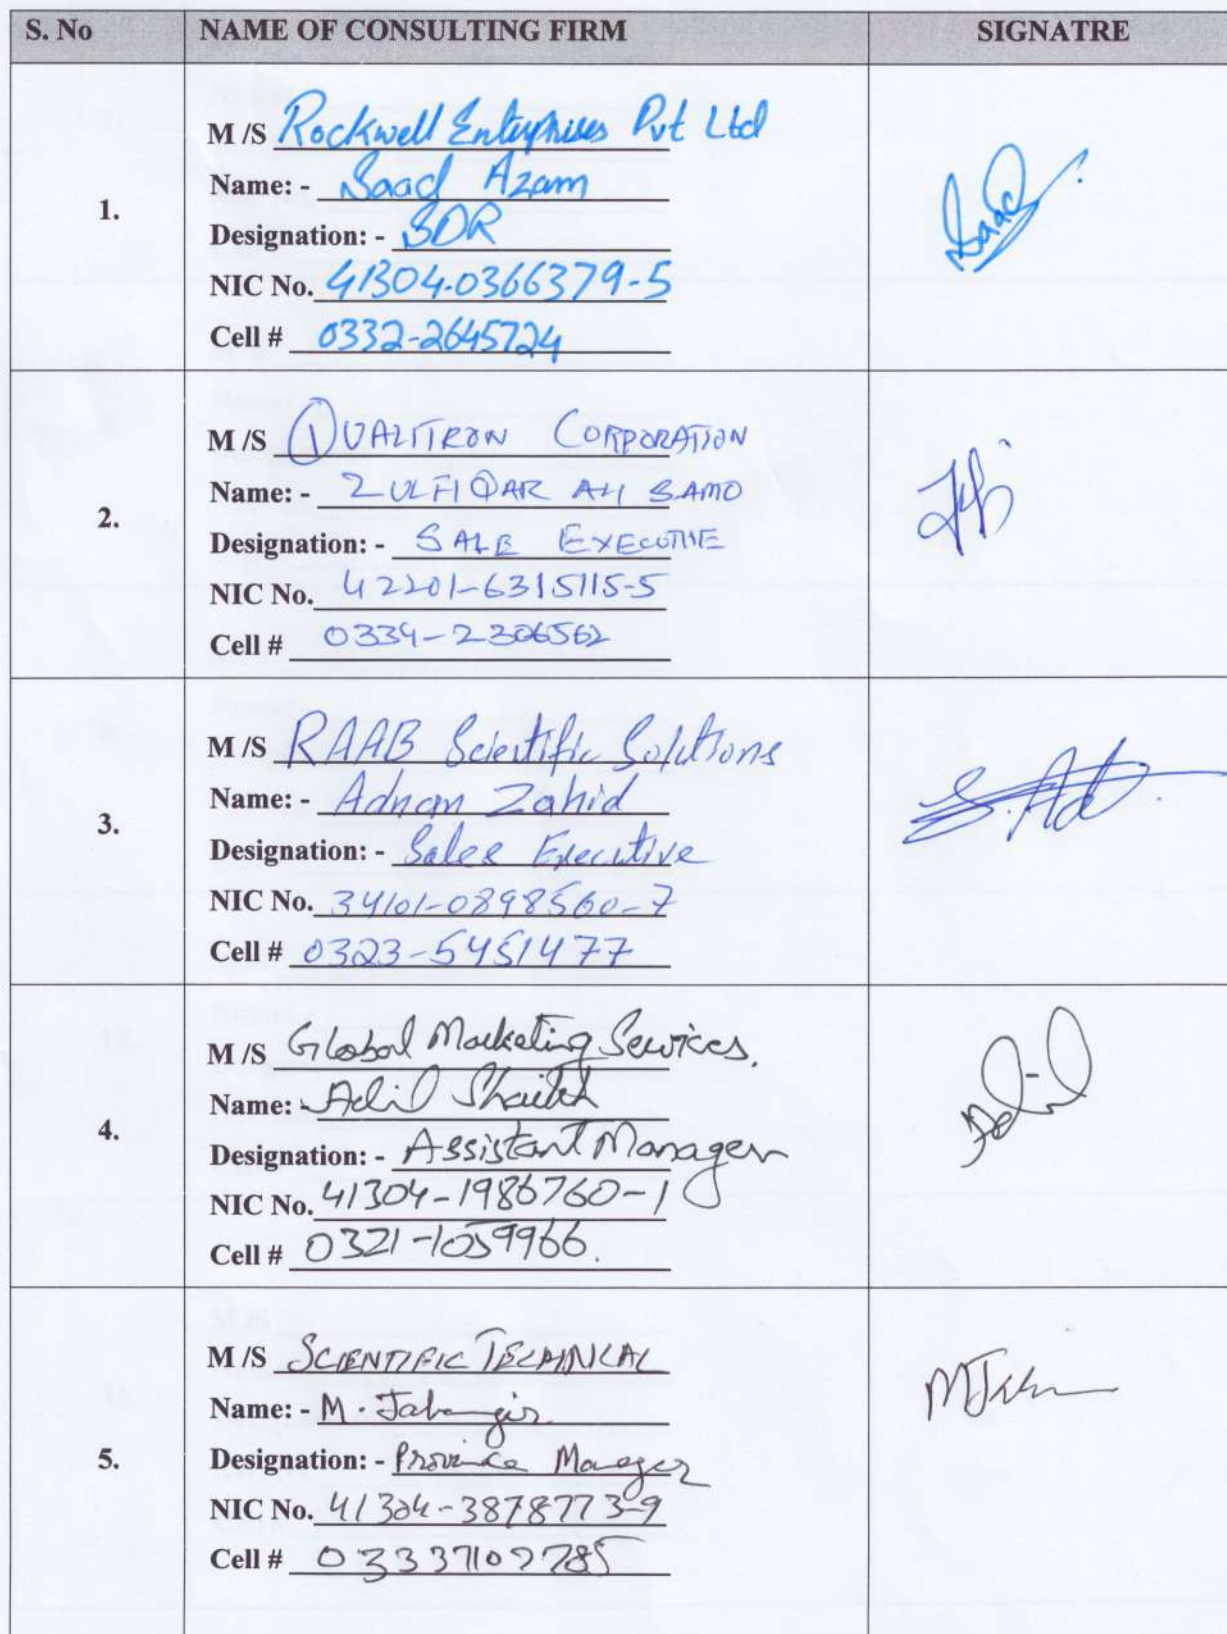 S. No NAME OF CONSULTING FIRM SIGNATRE
1.
M /S Rockwell Enterprises Pvt Ltd
Name: - Saad Azam
Designation: - SDR
NIC No. 41304-0366379-5
Cell # 0332-2645724
Saad
2.
M /S QUALITRON CORPORATION
Name: - ZULFIQAR ALI SAMO
Designation: - SALE EXECUTIVE
NIC No. 42201-6315115-5
Cell # 0334-2306562
3.
M /S RAAB Scientific Solutions
Name: - Adnan Zahid
Designation: - Sales Executive
NIC No. 34101-0898560-7
Cell # 0323-5451477
4.
M /S Global Marketing Services.
Name: - Adil Shaikh
Designation: - Assistant Manager
NIC No. 41304-1986760-1
Cell # 0321-1059966.
5.
M /S SCIENTIFIC TECHNICAL
Name: - M. Jahangir
Designation: - Province Manager
NIC No. 41304-3878773-9
Cell # 03337102785